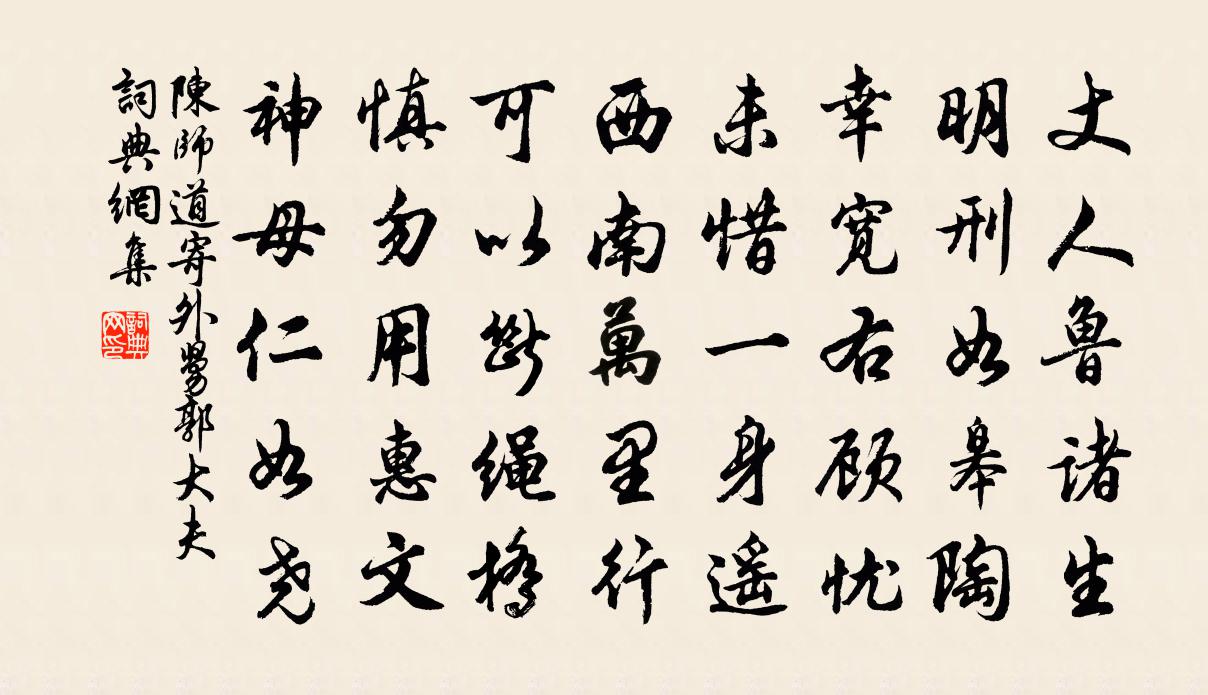 丈人鲁诸生
明刑如皋陶
幸宽右顾忧
未惜一身遥
西南萬里行
可以断绳桥
慎勿用惠文
神母仁如尧
陳師道寄外舅郭大夫
詞典網集
詞典
网印